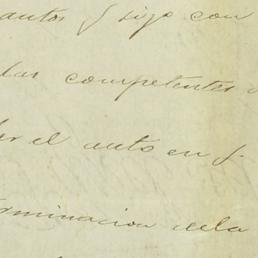 autos y sigo con
las competentes
el auto en q.
terminacion dela